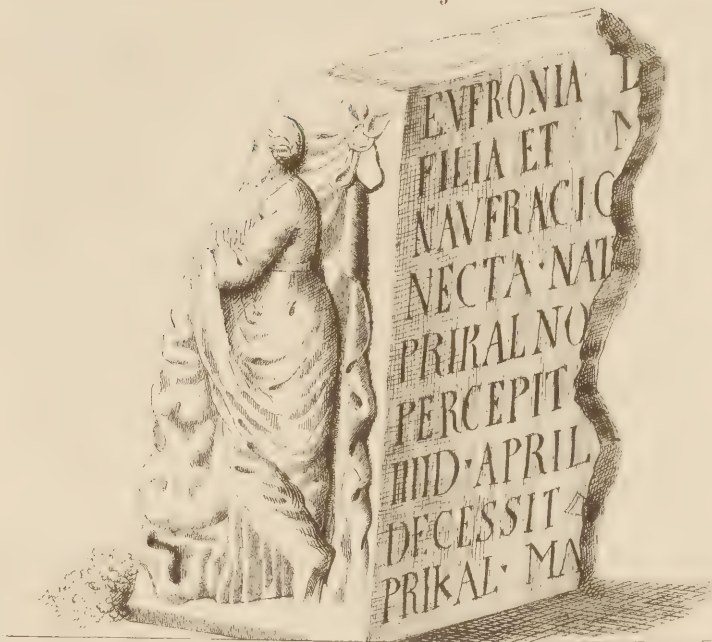 EVFRONIA
FILIA ET
NAVFRACIO
NECTA · NAT
PRIKAL NO
PERCEPIT
IIIID · APRIL
DECESSIT
PRIKAL · MA